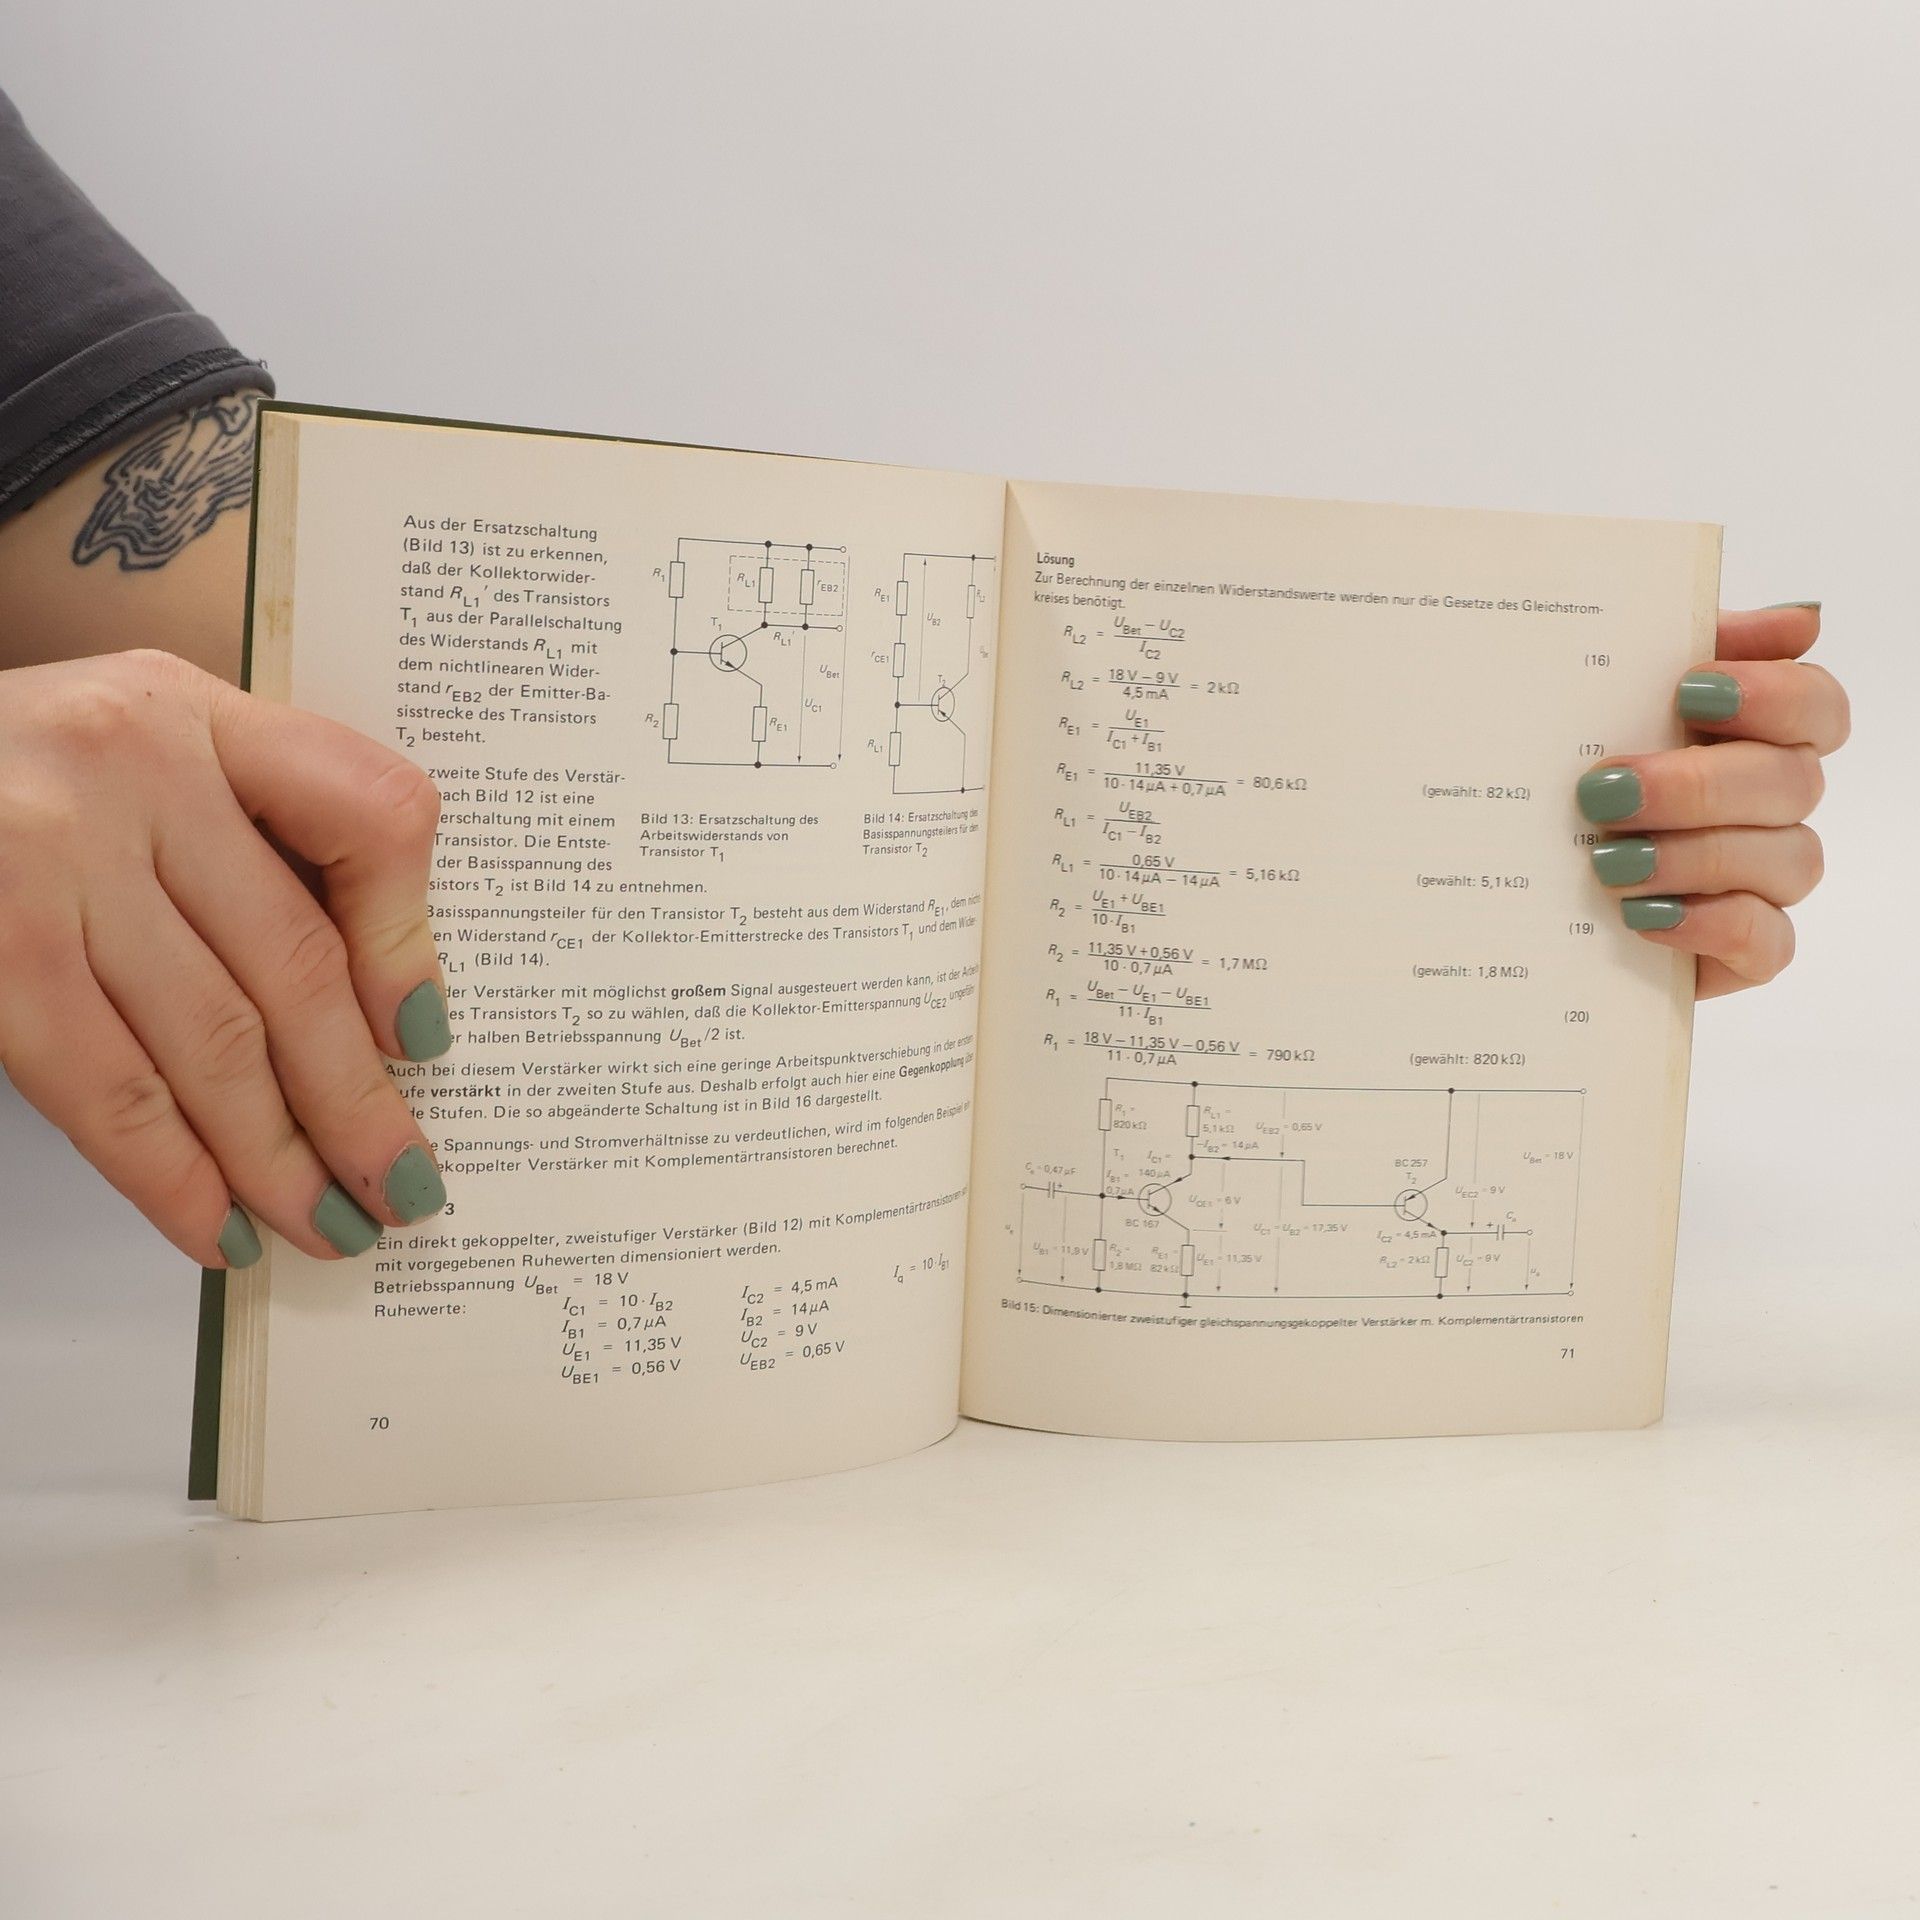 Aus der Ersatzschaltung
(Bild 13) ist zu erkennen,
daß der Kollektorwider-
stand R_L1' des Transistors
T_1 aus der Parallelschaltung
des Widerstands R_L1 mit
dem nichtlinearen Wider-
stand r_EB2 der Emitter-Ba-
sisstrecke des Transistors
T_2 besteht.
zweite Stufe des Verstär-
nach Bild 12 ist eine
erschaltung mit einem
Transistor. Die Entste-
der Basisspannung des
sistors T_2 ist Bild 14 zu entnehmen.
R_1
R_L1
r_EB2
T_1
R_L1'
U_Bet
U_C1
R_2
R_E1
Bild 13: Ersatzschaltung des
Arbeitswiderstands von
Transistor T_1
R_E1
U_B2
R_L2
r_CE1
U_Bet
T_2
R_L1
Bild 14: Ersatzschaltung des
Basisspannungsteilers für den
Transistor T_2
Basisspannungsteiler für den Transistor T_2 besteht aus dem Widerstand R_E1, dem nicht
en Widerstand r_CE1 der Kollektor-Emitterstrecke des Transistors T_1 und dem Wider-
R_L1 (Bild 14).
der Verstärker mit möglichst großem Signal ausgesteuert werden kann, ist der Arbeit
es Transistors T_2 so zu wählen, daß die Kollektor-Emitterspannung U_CE2 ungefähr
er halben Betriebsspannung U_Bet/2 ist.
Auch bei diesem Verstärker wirkt sich eine geringe Arbeitspunktverschiebung in der ersten
ufe verstärkt in der zweiten Stufe aus. Deshalb erfolgt auch hier eine Gegenkopplung über
de Stufen. Die so abgeänderte Schaltung ist in Bild 16 dargestellt.
e Spannungs- und Stromverhältnisse zu verdeutlichen, wird im folgenden Beispiel ein
ekoppelter Verstärker mit Komplementärtransistoren berechnet.
3
Ein direkt gekoppelter, zweistufiger Verstärker (Bild 12) mit Komplementärtransistoren soll
mit vorgegebenen Ruhewerten dimensioniert werden.
Betriebsspannung U_Bet = 18 V
Ruhewerte: I_C1 = 10 · I_B2 I_C2 = 4,5 mA I_q = 10 · I_B1
I_B1 = 0,7 µA I_B2 = 14 µA
U_E1 = 11,35 V U_C2 = 9 V
U_BE1 = 0,56 V U_EB2 = 0,65 V
70
Lösung
Zur Berechnung der einzelnen Widerstandswerte werden nur die Gesetze des Gleichstrom-
kreises benötigt.
R_L2 = (U_Bet − U_C2) / I_C2 (16)
R_L2 = (18 V − 9 V) / 4,5 mA = 2 kΩ
R_E1 = U_E1 / (I_C1 + I_B1) (17)
R_E1 = 11,35 V / (10 · 14 µA + 0,7 µA) = 80,6 kΩ (gewählt: 82 kΩ)
R_L1 = U_EB2 / (I_C1 − I_B2) (18)
R_L1 = 0,65 V / (10 · 14 µA − 14 µA) = 5,16 kΩ (gewählt: 5,1 kΩ)
R_2 = (U_E1 + U_BE1) / (10 · I_B1) (19)
R_2 = (11,35 V + 0,56 V) / (10 · 0,7 µA) = 1,7 MΩ (gewählt: 1,8 MΩ)
R_1 = (U_Bet − U_E1 − U_BE1) / (11 · I_B1) (20)
R_1 = (18 V − 11,35 V − 0,56 V) / (11 · 0,7 µA) = 790 kΩ (gewählt: 820 kΩ)
R_1 = 820 kΩ
R_L1 = 5,1 kΩ
U_EB2 = 0,65 V
−I_B2 = 14 µA
T_1
I_C1 = 140 µA
I_B1 = 0,7 µA
C_e = 0,47 µF
BC 167
U_CE1 = 6 V
U_C1 = U_B2 = 17,35 V
BC 257
T_2
U_Bet = 18 V
U_EC2 = 9 V
C_a
I_C2 = 4,5 mA
R_L2 = 2 kΩ
U_C2 = 9 V
u_e
U_B1 = 11,9 V
R_2 = 1,8 MΩ
R_E1 = 82 kΩ
U_E1 = 11,35 V
u_a
Bild 15: Dimensionierter zweistufiger gleichspannungsgekoppelter Verstärker m. Komplementärtransistoren
71